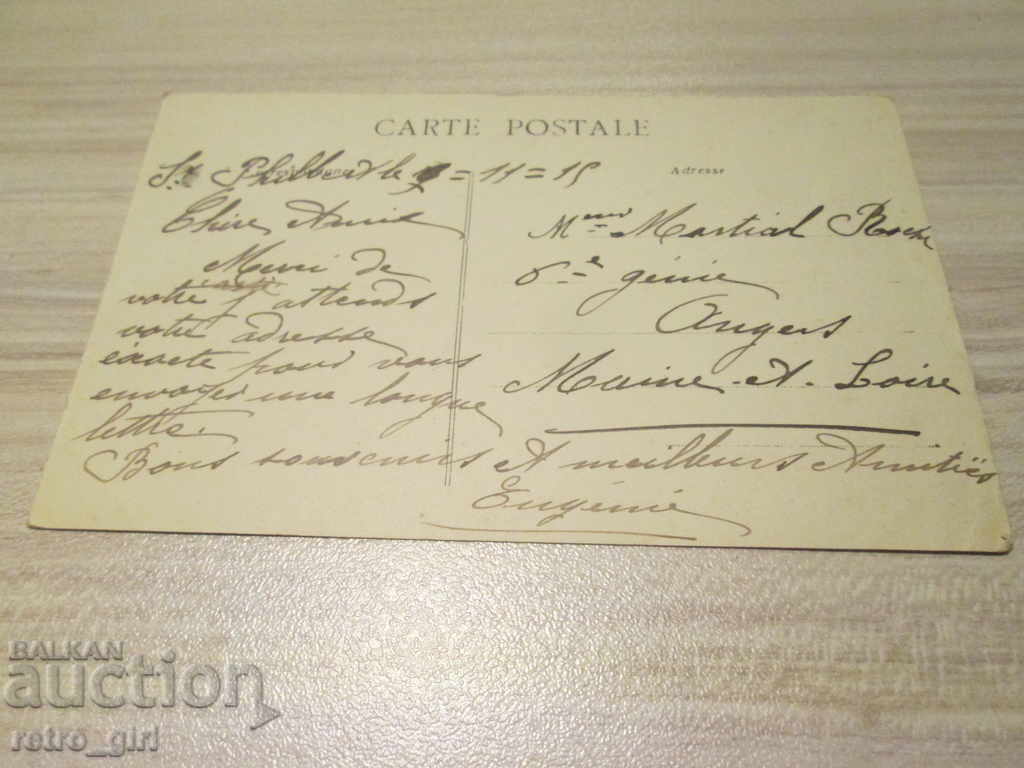 CARTE POSTALE
St Philbert le 9 = 11 = 15
Adresse
Chère Amie
Merci de
votre carte j'attends
votre adresse
exacte pour vous
envoyer une longue
lettre.
Bons souvenirs & meilleurs Amitiés
Eugénie
Mme Martial Roche
6e génie
Angers
Maine-&-Loire
BALKAN
auction
retro_girl